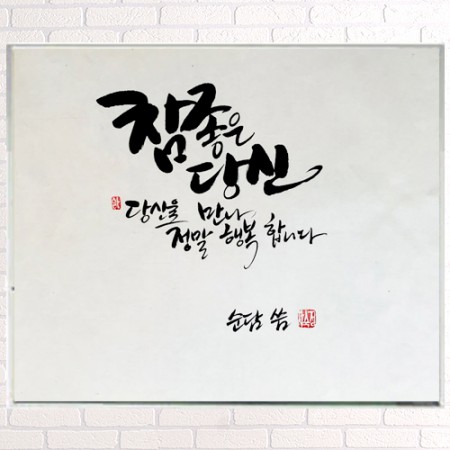 참좋은
당신
당신을 만나
정말 행복 합니다
순담 씀